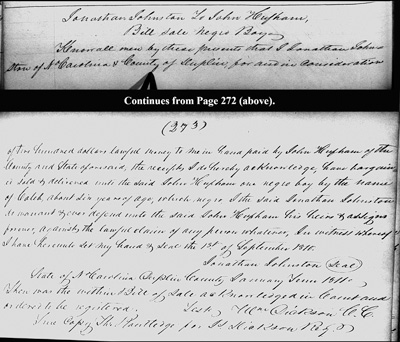 Jonathan Johnston To John Hufham,
Bill Sale Negro Boy
Know all men by these presents that I Jonathan Johns
ton of N Carolina & County of Duplin, for and in consideration
Continues from Page 272 (above).
(273)
of two hundred dollars lawful money to me in hand paid by John Hufham of the
County and State aforesaid, the receipt I do hereby acknowledge, have bargain
sold & delivered unto the said John Hufham one negro boy by the name
of Caleb about six years of age, which negro I the said Jonathan Johnston
do warrant & ever defend unto the said John Hufham his heirs & assigns
forever, against the lawful claim of any person whatever, In witness whereof
I have hereunto set my hand & seal the 1st of September 1810.
Jonathan Johnston (seal)
State of N Carolina Duplin County January Term 1811.
Then was the within Bill of Sale acknowledged in Court and
ordered to be registered. Test. Wm Dickson C.C.
True Copy Thos Routledge for Jas Hickson